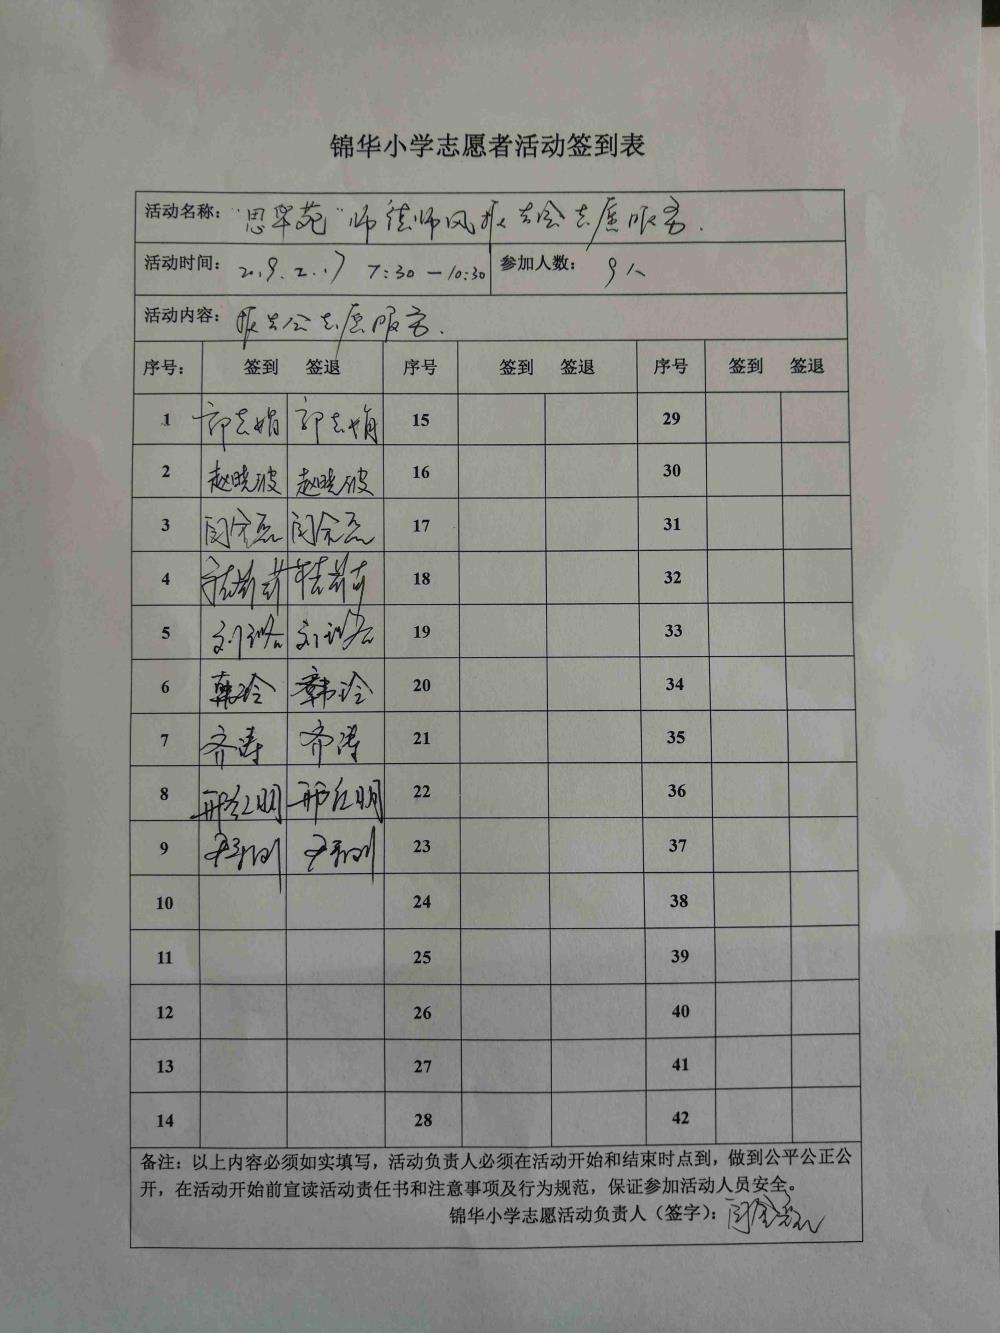 锦华小学志愿者活动签到表
活动名称："思华苑"师德师风报告会志愿服务.
活动时间：2019.2.17 7:30—10:30 参加人数：9人
活动内容：报告会志愿服务.
序号： 签到 签退 序号 签到 签退 序号 签到 签退
1 郭志娟 郭志娟 15 29
2 赵晓波 赵晓波 16 30
3 17 31
4 18 32
5 19 33
6 韩玲 韩玲 20 34
7 齐涛 齐涛 21 35
8 邢红明 邢红明 22 36
9 23 37
10 24 38
11 25 39
12 26 40
13 27 41
14 28 42
备注：以上内容必须如实填写，活动负责人必须在活动开始和结束时点到，做到公平公正公
开，在活动开始前宣读活动责任书和注意事项及行为规范，保证参加活动人员安全。
锦华小学志愿活动负责人（签字）：